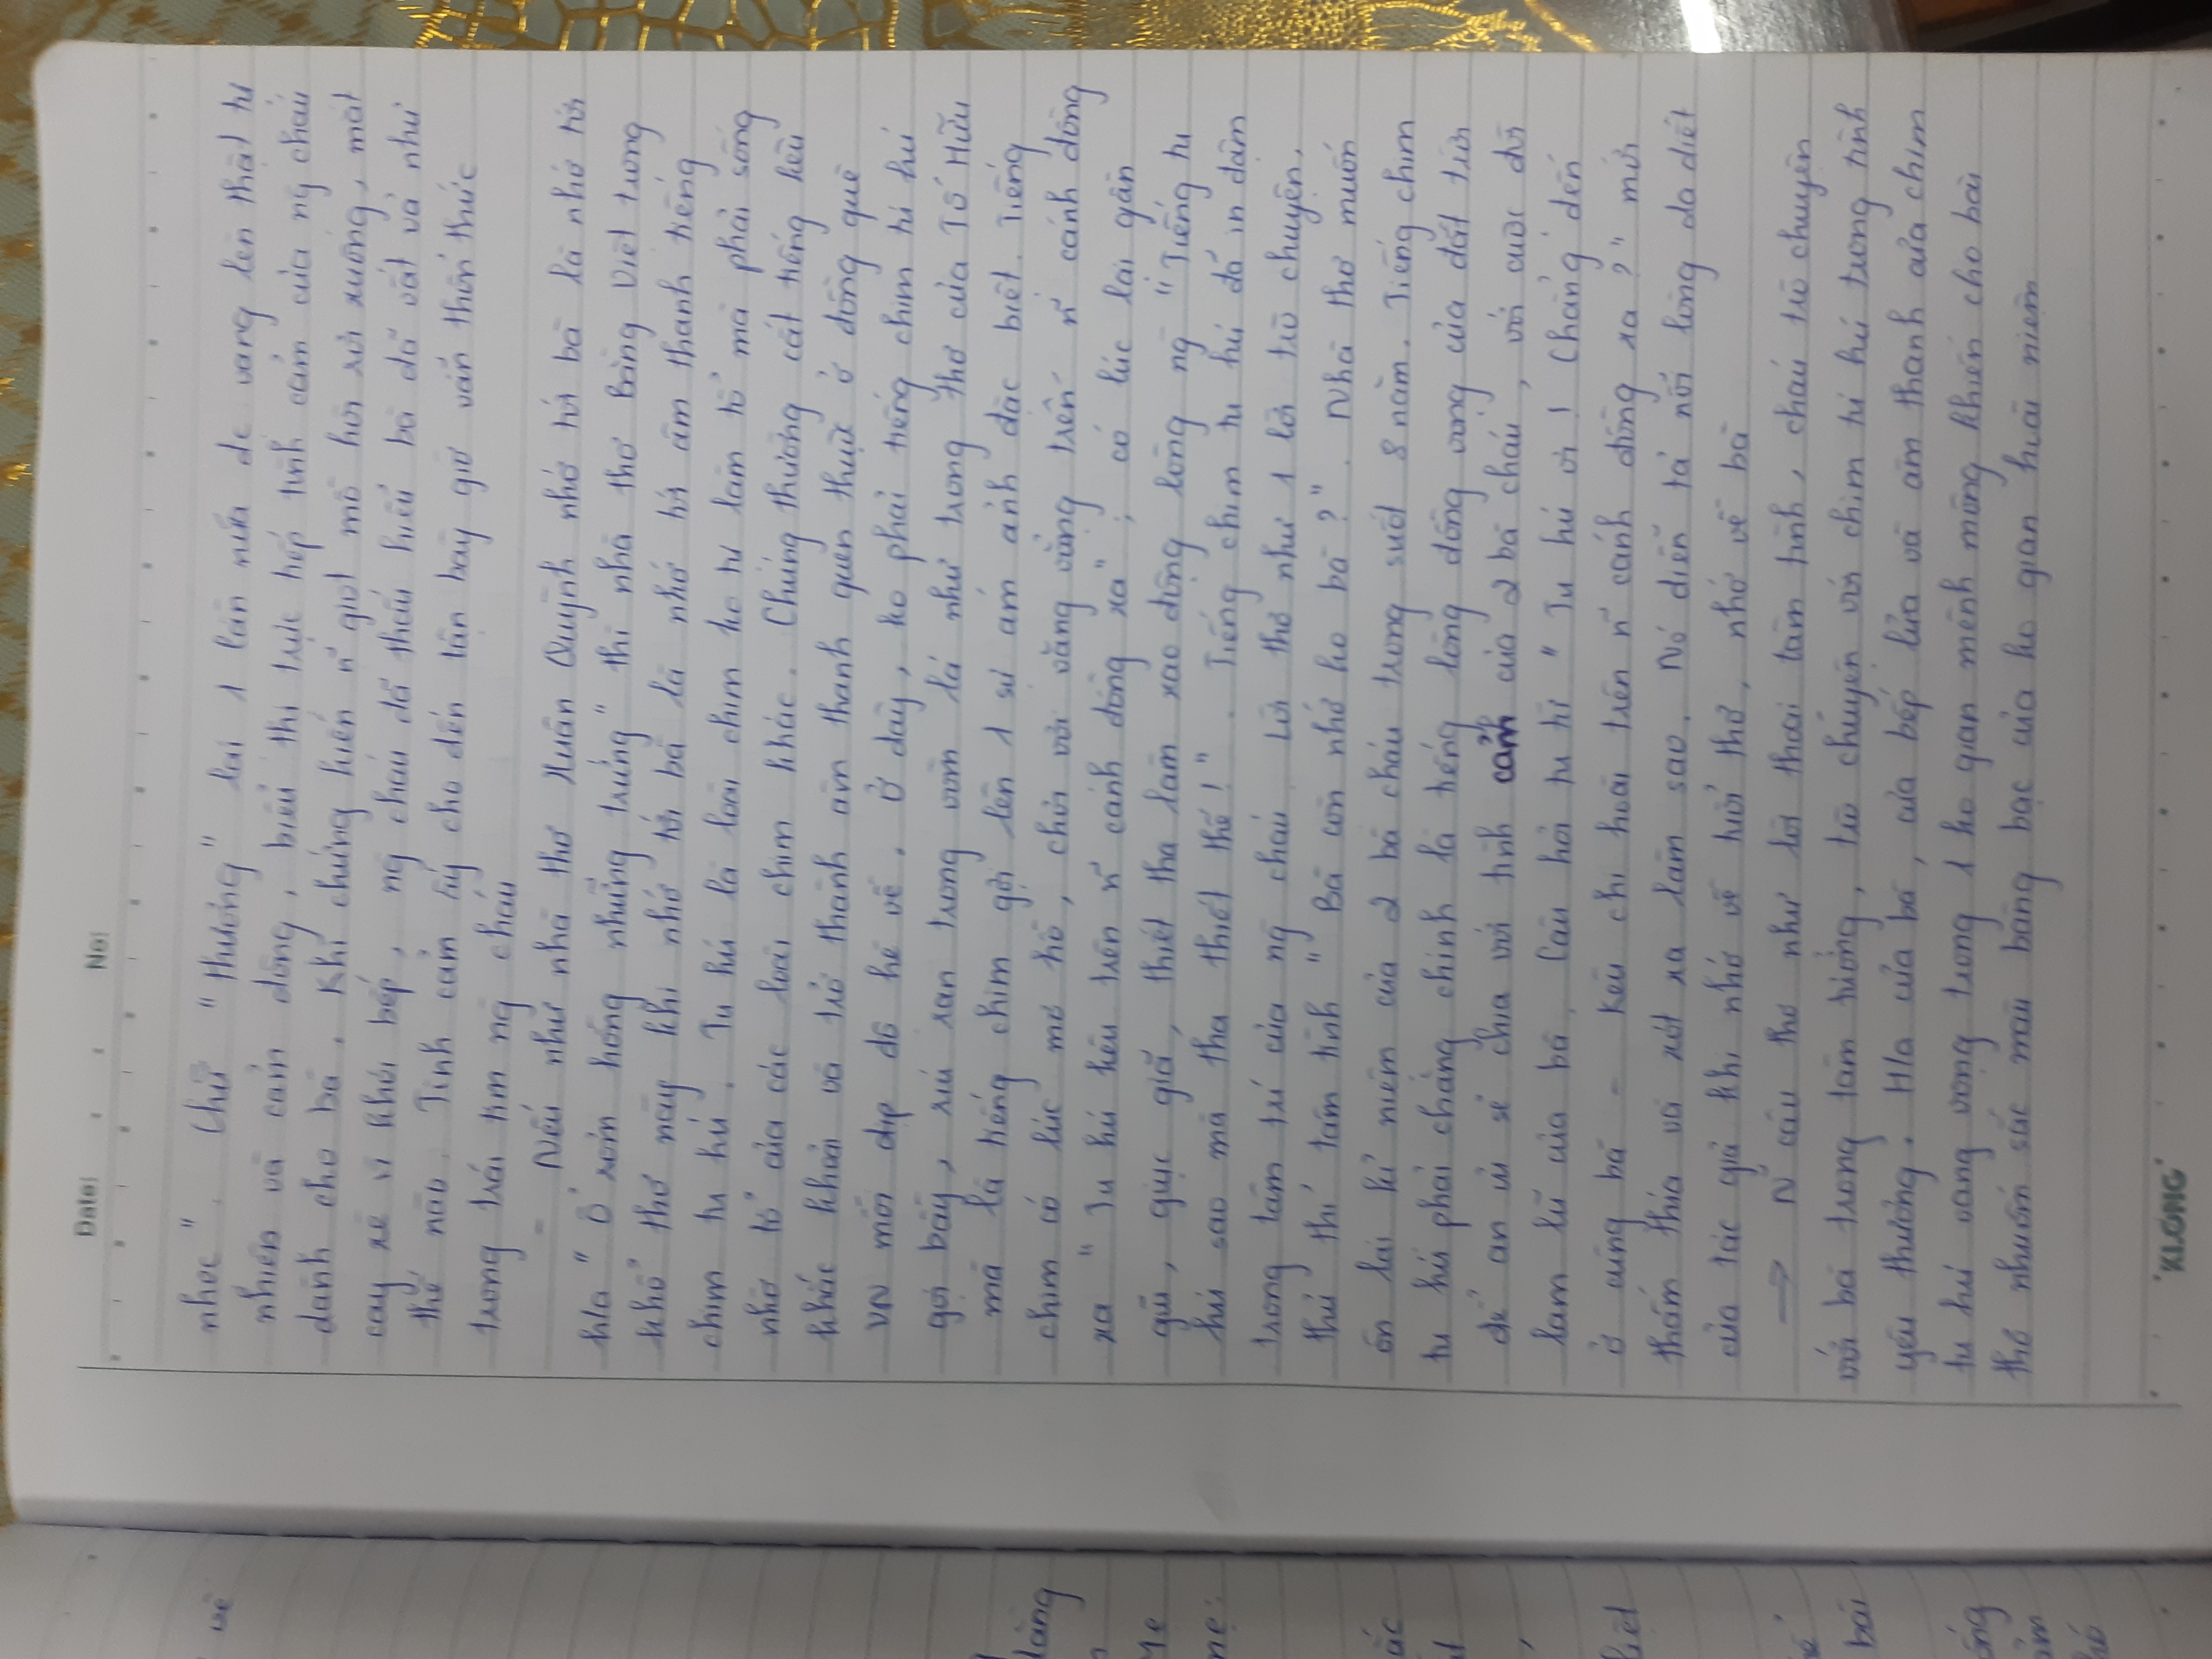 Date: No:
nhọc". Chữ "thương" lại 1 lần nữa đc vang lên thật tự
nhiên và cảm động, biểu thị trực tiếp tình cảm của ng cháu
dành cho bà. Khi chứng kiến n~ giọt mồ hôi rơi xuống, mắt
cay xè vì khói bếp, ng cháu đã thấu hiểu bà đã vất vả như
thế nào. Tình cảm ấy cho đến tận bây giờ vẫn thổn thức
trong trái tim ng cháu
- Nếu như nhà thơ Xuân Quỳnh nhớ tới bà là nhớ tới
h/a "Ổ rơm hồng những trứng" thì nhà thơ Bằng Việt trong
khổ thơ này khi nhớ tới bà là nhớ tới âm thanh tiếng
chim tu hú. Tu hú là loài chim ko tự làm tổ mà phải sống
nhờ tổ của các loài chim khác. Chúng thường cất tiếng kêu
khắc khoải và trở thành âm thanh quen thuộc ở đồng quê
VN mỗi dịp độ hè về. Ở đây, ko phải tiếng chim tu hú
gọi bầy, ríu ran trong vòm lá như trong thơ của Tố Hữu
mà là tiếng chim gợi lên 1 sự ám ảnh đặc biệt. Tiếng
chim có lúc mơ hồ, chơi vơi văng vẳng trên n~ cánh đồng
xa "Tu hú kêu trên n~ cánh đồng xa"; có lúc lại gần
gũi, giục giã, thiết tha làm xao động lòng ng "Tiếng tu
hú sao mà tha thiết thế!". Tiếng chim tu hú đã in đậm
trong tâm trí của ng cháu. Lời thơ như 1 lời trò chuyện,
thủ thỉ tâm tình "Bà còn nhớ ko bà?". Nhà thơ muốn
ôn lại kỉ niệm của 2 bà cháu trong suốt 8 năm. Tiếng chim
tu hú phải chăng chính là tiếng lòng đồng vọng của đất trời
để an ủi sẻ chia với tình cảnh của 2 bà cháu, với cuộc đời
lam lũ của bà. Câu hỏi tu từ "Tu hú ơi! Chẳng đến
ở cùng bà - Kêu chi hoài trên n~ cánh đồng xa?" mới
thấm thía và xót xa làm sao. Nó diễn tả nỗi lòng da diết
của tác giả khi nhớ về tuổi thơ, nhớ về bà
→ N~ câu thơ như lời thoại tâm tình, cháu trò chuyện
với bà trong tâm tưởng, trò chuyện với chim tu hú trong tình
yêu thương. H/a của bà, của bếp lửa và âm thanh của chim
tu hú vang vọng trong 1 ko gian mênh mông khiến cho bài
thơ nhuốm sắc màu bàng bạc của ko gian hoài niệm
KLONG